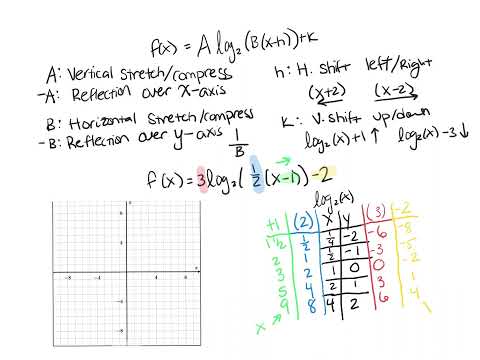 f(x) = A log₂(B(x+h)) + K
A: Vertical Stretch/compress
-A: Reflection over x-axis
B: Horizontal Stretch/compress
-B: Reflection over y-axis 1/B
h: H. shift left/Right
(x+2) ← (x-2) →
K: V. shift up/down
log₂(x)+1 ↑ log₂(x)-3 ↓
f(x) = 3log₂(1/2(x-1)) - 2
log₂(x)
+1 | (2) | x | y | (3) | -2
1 1/2 | 1/2 | 1/4 | -2 | -6 | -8
2 | 1 | 1/2 | -1 | -3 | -5
3 | 2 | 1 | 0 | 0 | -2
5 | 4 | 2 | 1 | 3 | 1
9 | 8 | 4 | 2 | 6 | 4
x ↗